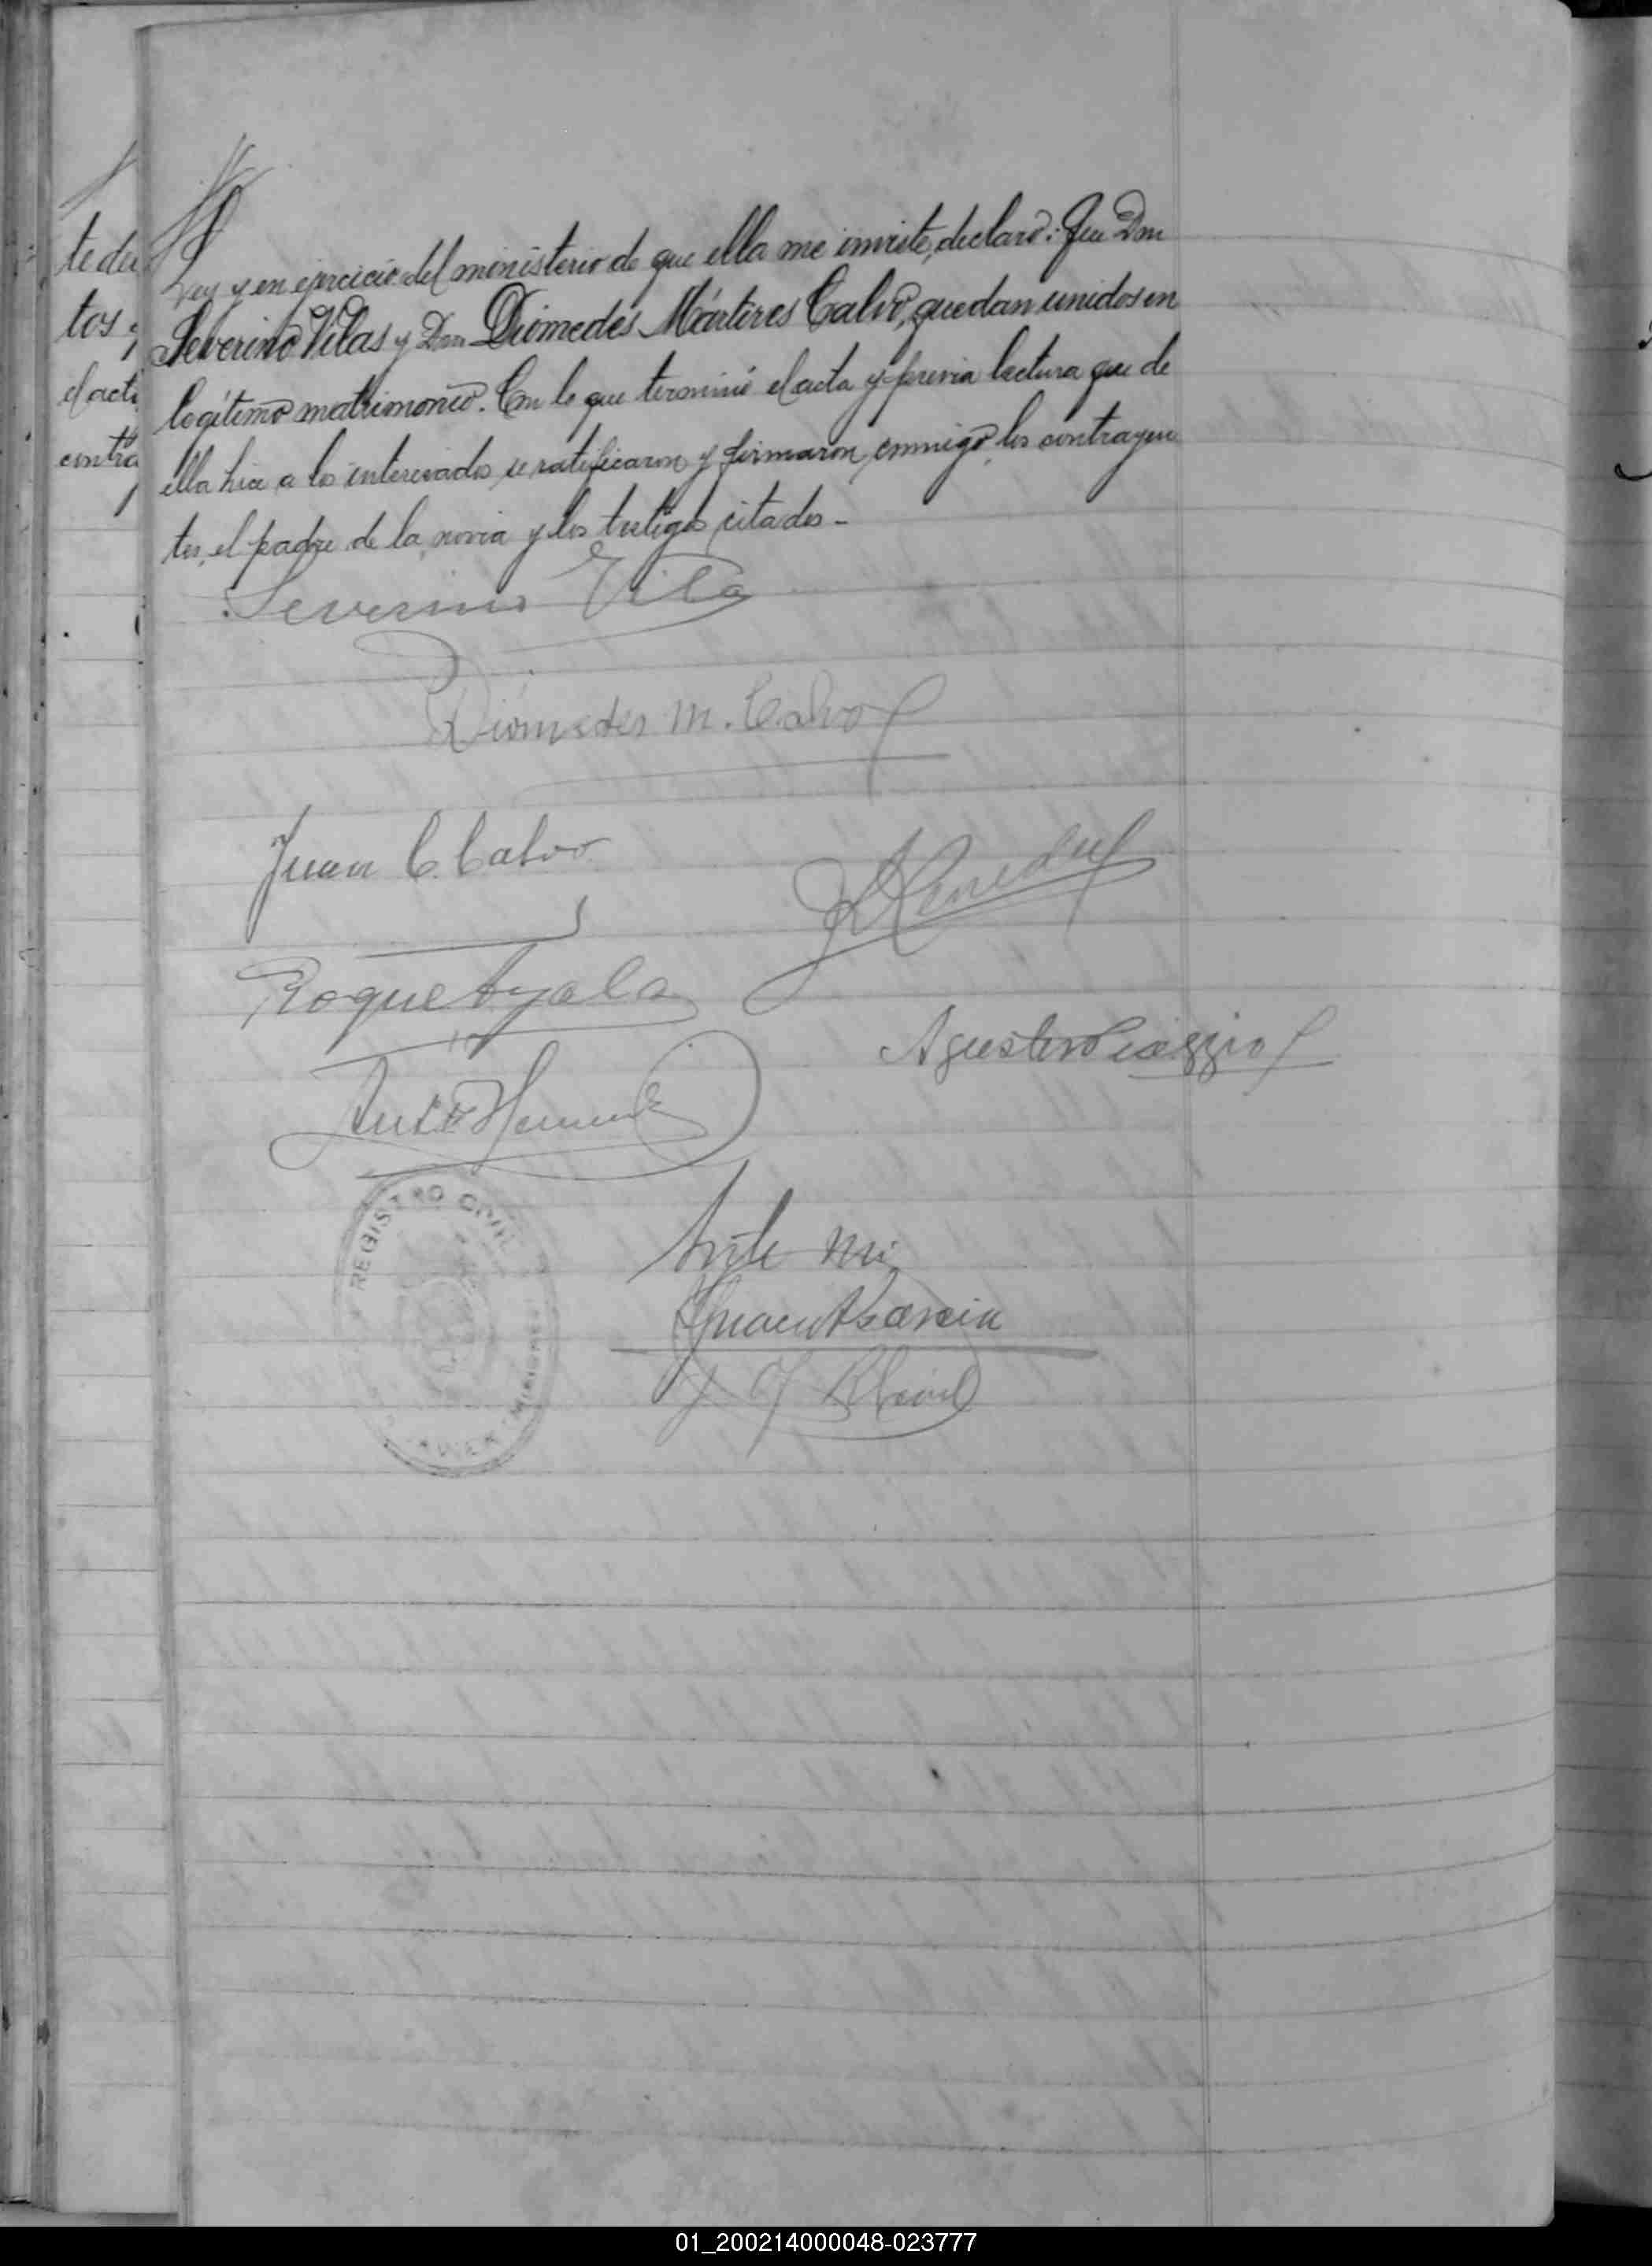 te de
tos
el act
contra
Ley y en ejercicio del ministerio de que ella me inviste, declaro: Que Don
Severino Vilas y Don Diómedes Mártires Calvo, quedan unidos en
legítimo matrimonio. Con lo que terminó el acta y previa lectura que de
ella hice a los interesados se ratificaron y firmaron conmigo, los contrayen
tes, el padre de la novia y los testigos citados -
Severino Vila
Diómedes M. Calvo
Juan C. Calvo
Roque Ayala
Agustin Piaggio
Ante mi
Garcia
REGISTRO CIVIL
MISIONES
01_200214000048-023777